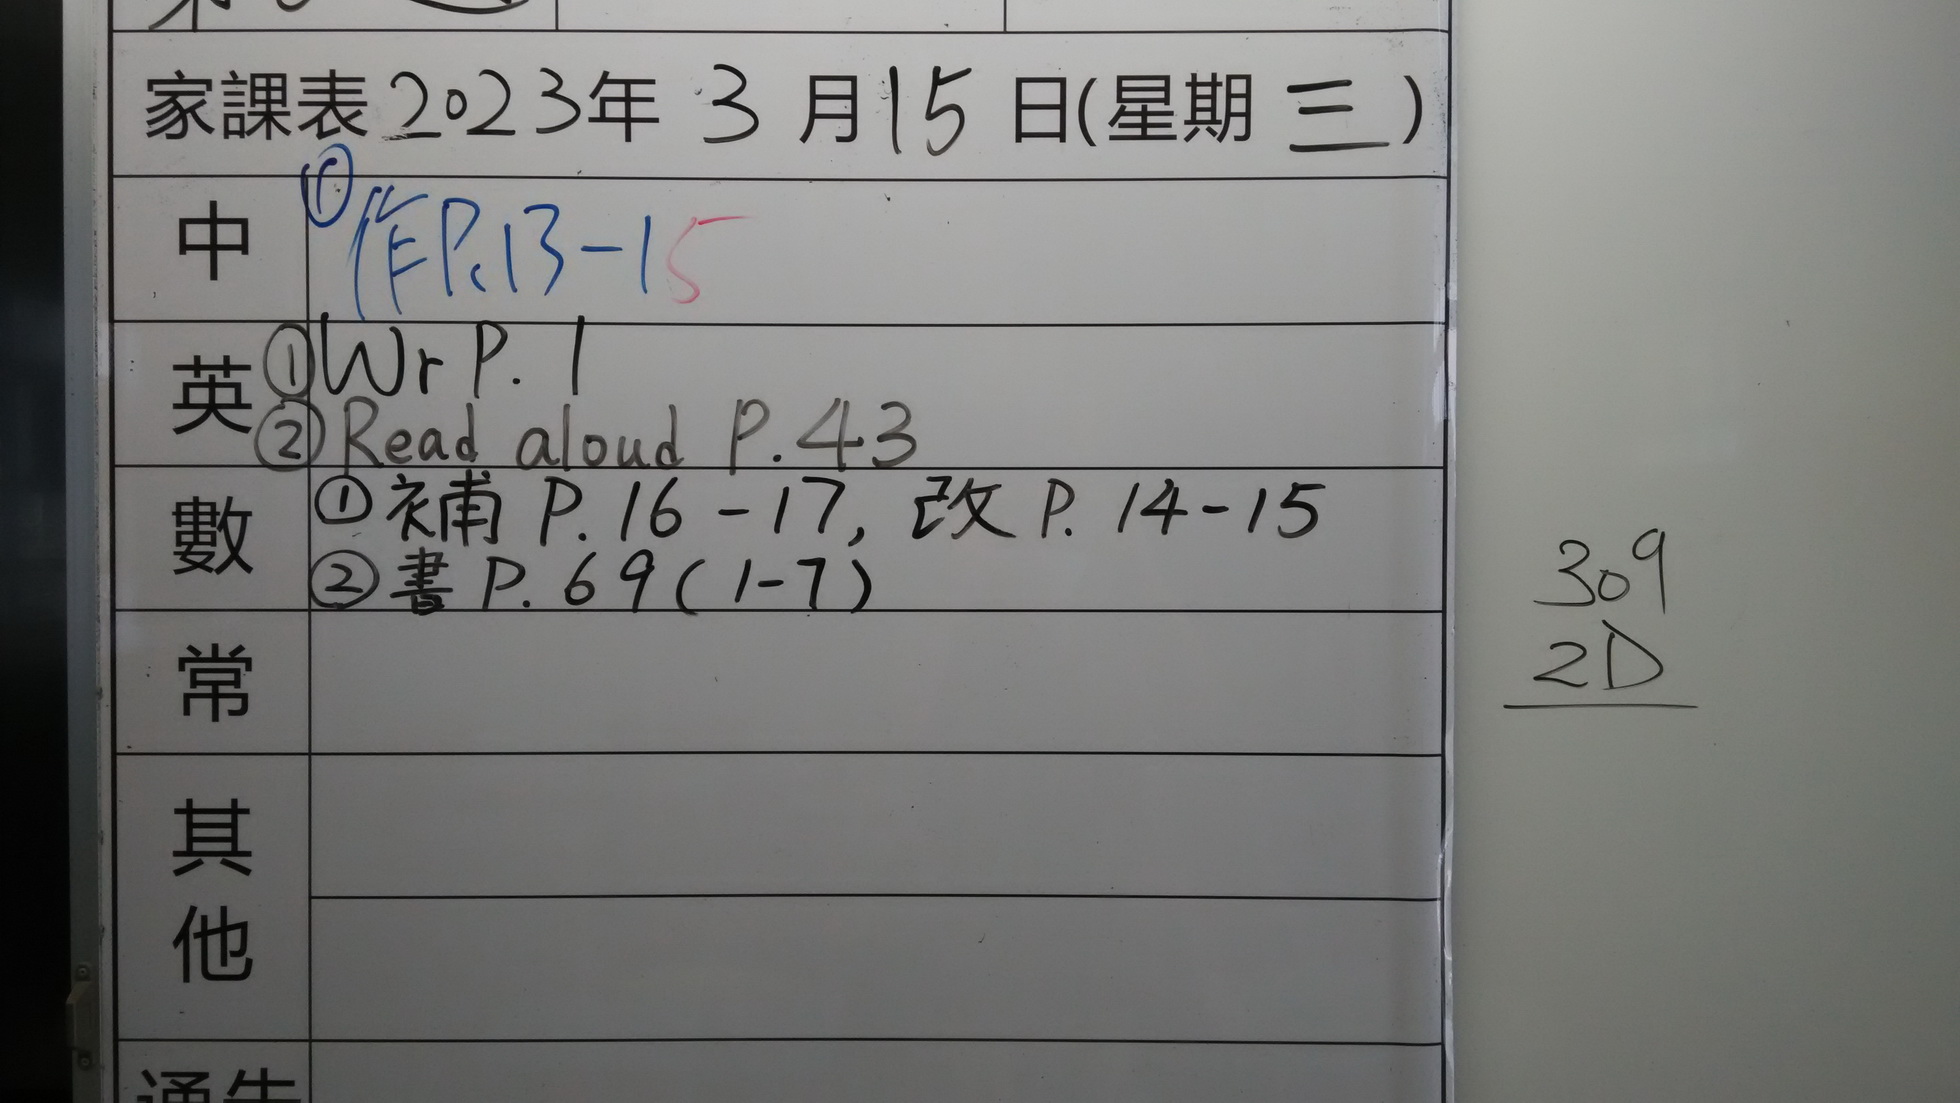 家課表 2023年 3 月 15 日(星期 三)
中 ① 作P.13-15
英 ① Wr P. 1
② Read aloud P.43
數 ① 補 P.16-17, 改 P. 14-15
② 書 P. 69 (1-7)
309
2D
常
其他
通告